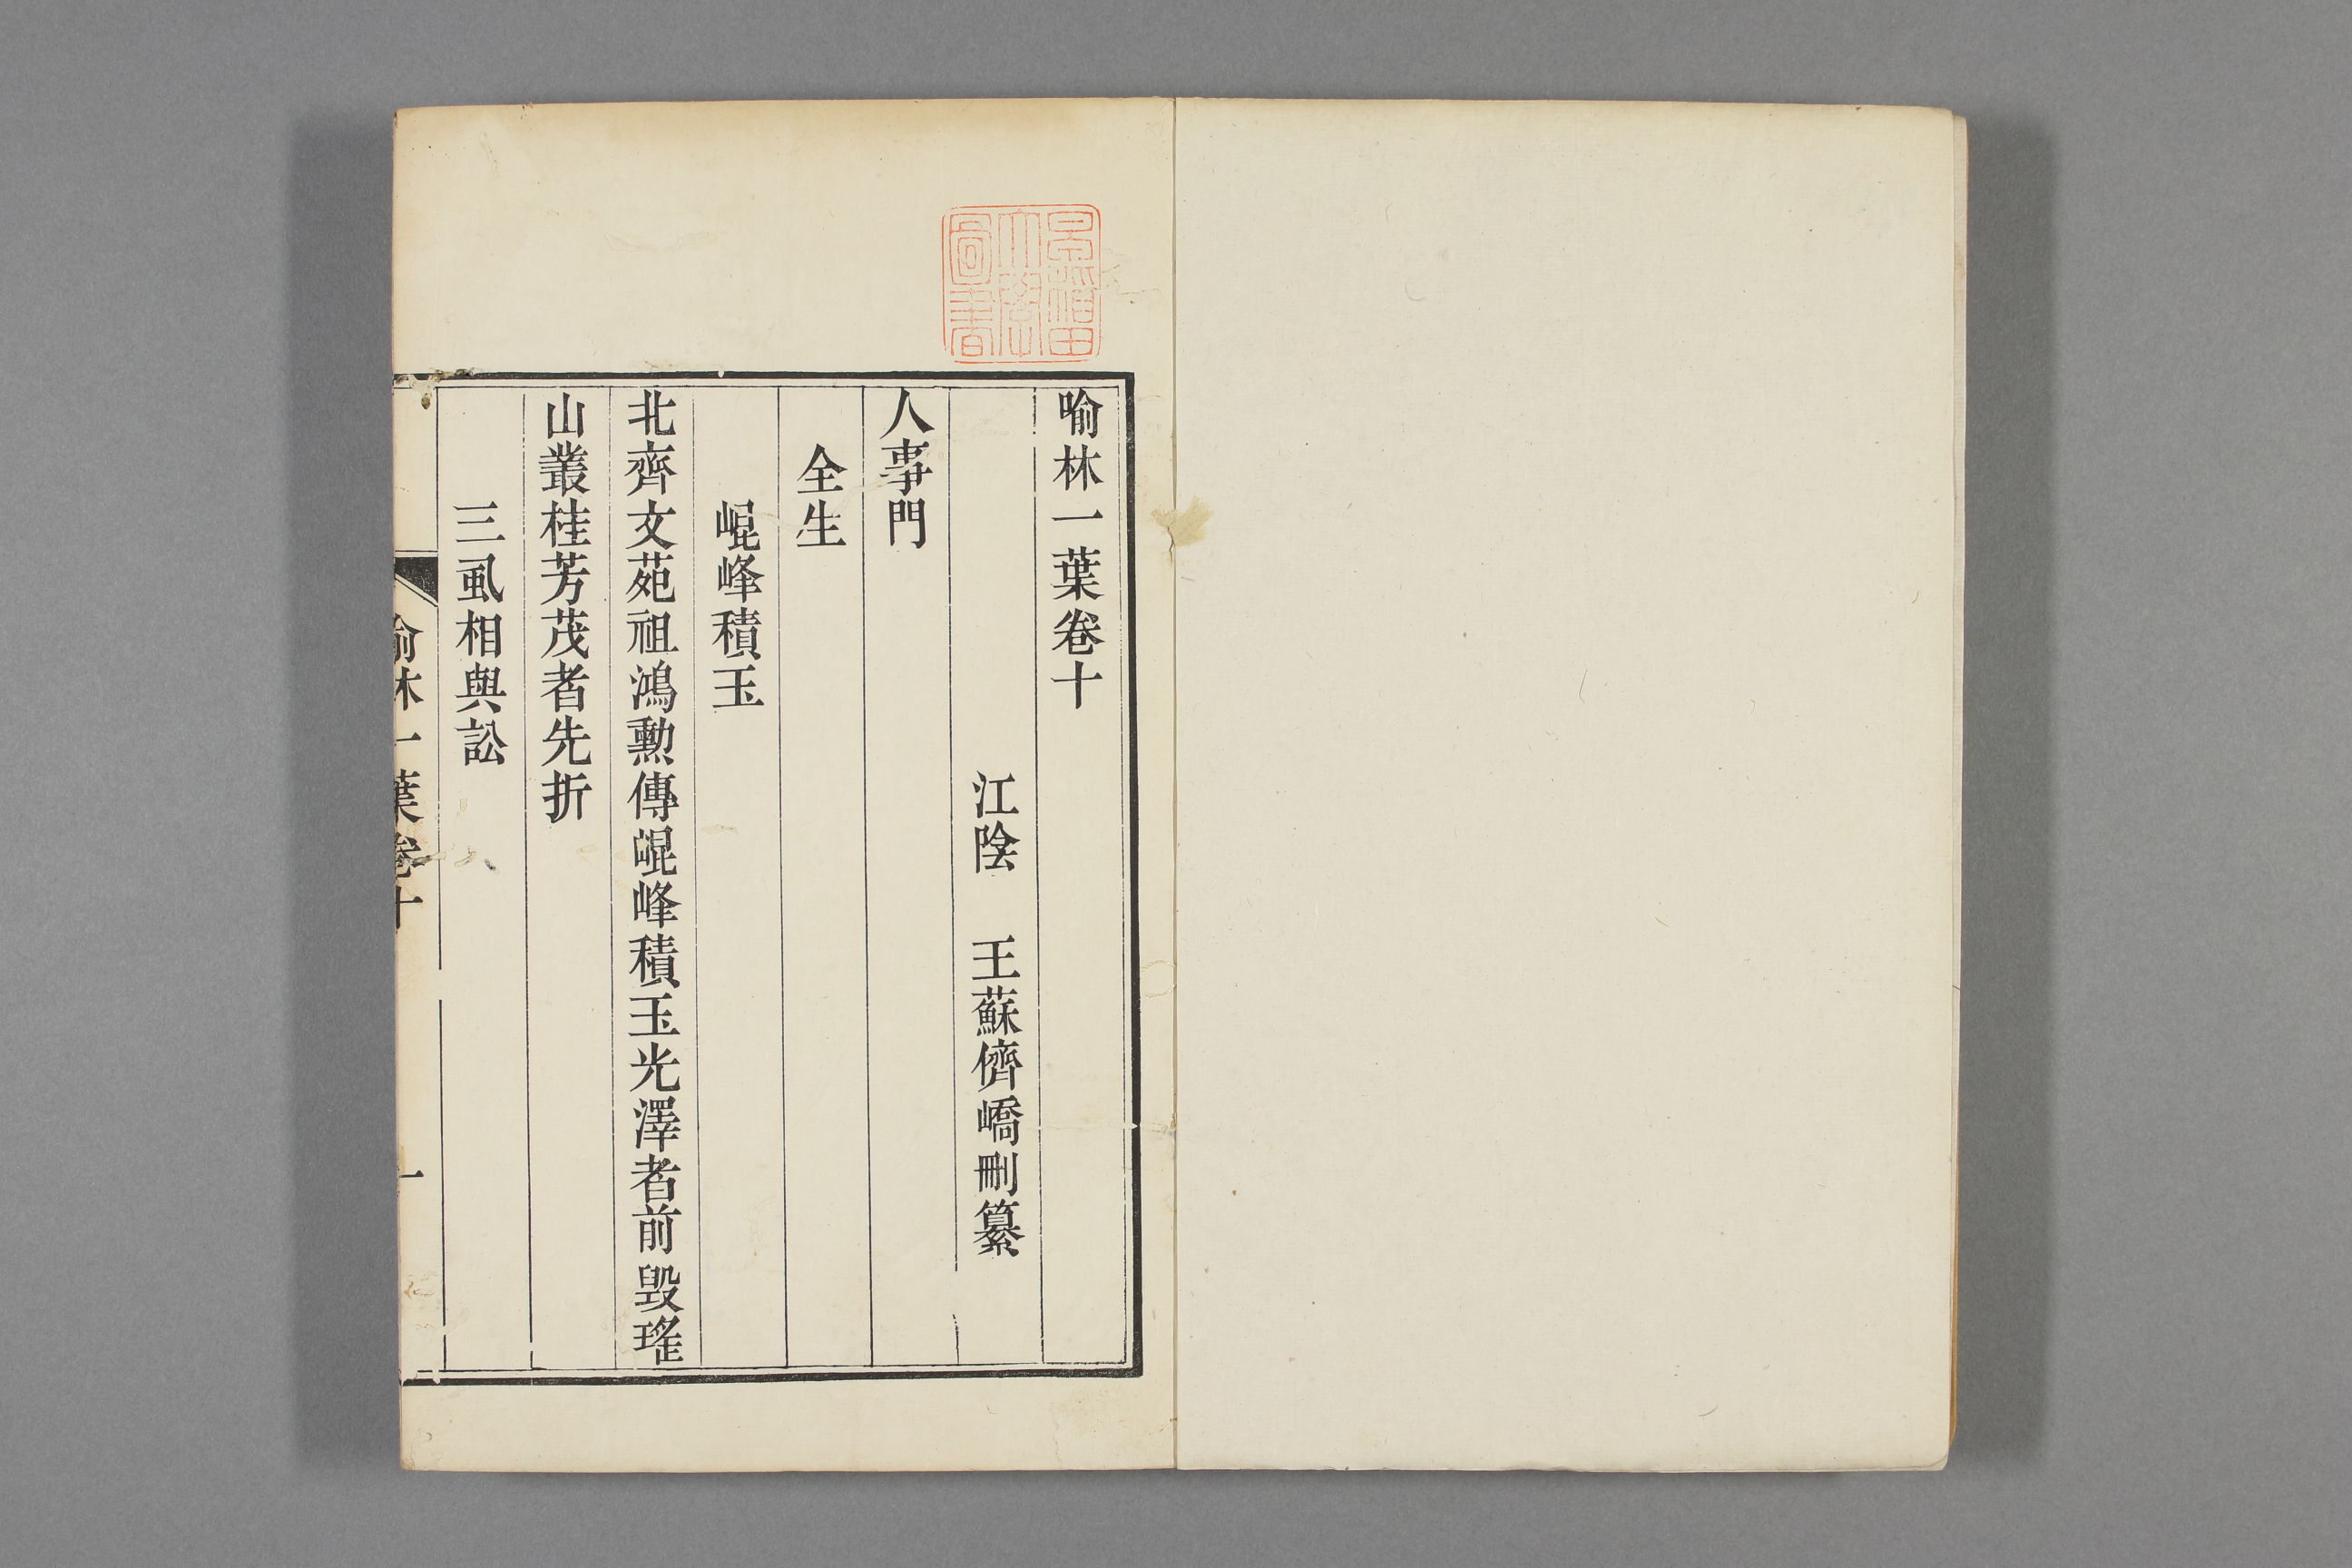 喻林一葉卷十
江陰　王蘇儕嶠刪纂
人事門
全生
崐峰積玉
北齊文苑祖鴻勳傳崐峰積玉光澤者前毀瑤
山叢桂芳茂者先折
三虱相與訟
喻林一葉卷十
一
早稻田大學圖書